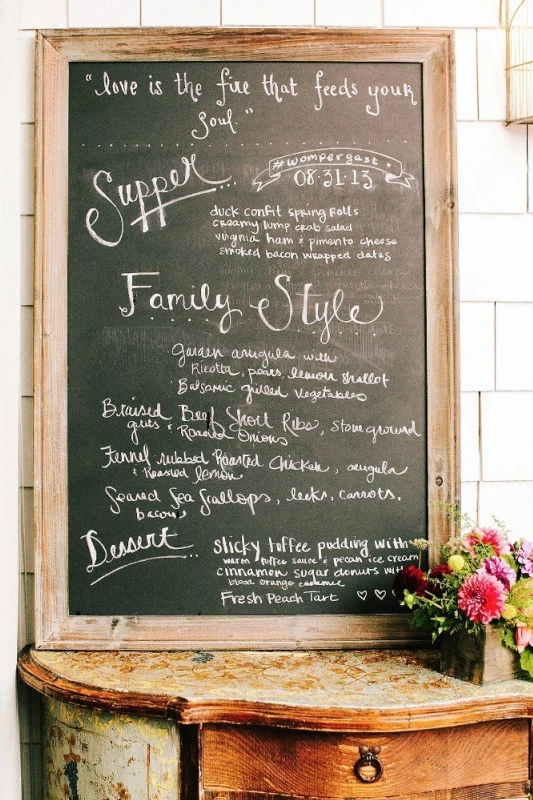 "love is the fire that feeds your
soul."
Supper...
#wompergast
08·31·13
duck confit spring rolls
creamy lump crab salad
virginia ham & pimento cheese
smoked bacon wrapped dates
Family Style
Garden arugula with
Ricotta, pears, lemon shallot
Balsamic grilled vegetables
Braised Beef Short Ribs, stone ground
grits & Roasted Onions
Fennel rubbed Roasted Chicken, arugula
& Roasted lemon
Seared Sea Scallops, leeks, carrots,
bacon
Dessert...
sticky toffee pudding with
warm toffee sauce & pecan ice cream
cinnamon sugar donuts with
blood orange caramel
Fresh Peach Tart ♡ ♡ ♡